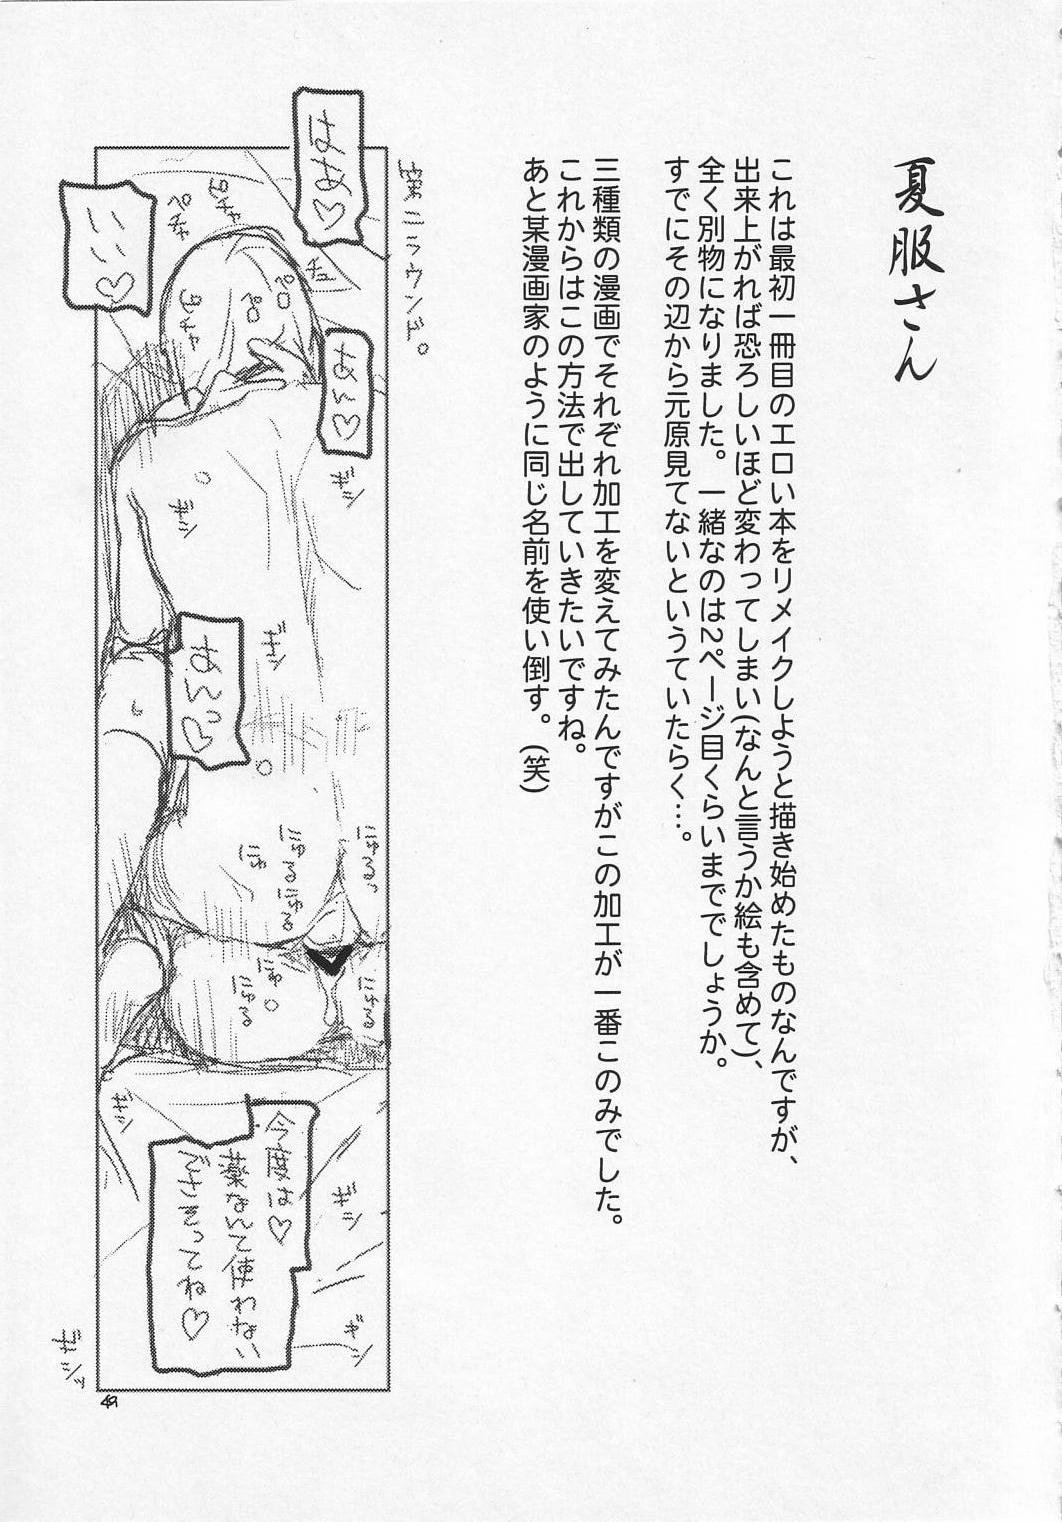 夏服さん
これは最初一冊目のエロい本をリメイクしようと描き始めたものなんですが、
出来上がれば恐ろしいほど変わってしまい(なんと言うか絵も含めて)、
全く別物になりました。一緒なのは2ページ目くらいまででしょうか。
すでにその辺から元原見てないというていたらく…。
三種類の漫画でそれぞれ加工を変えてみたんですがこの加工が一番このみでした。
これからはこの方法で出していきたいですね。
あと某漫画家のように同じ名前を使い倒す。(笑)
第二ラウンド。
はあ♡
いい♡
ピチャ
ペチャ
チュ
ペロ
ペロ
あん♡
ギシ
ギシ
ギシ
あんっ♡
にゅる
にゅる
にゅる
にゅ
にゅ
にゅる
にゅる
今度は♡
薬なんて使わない
でさそってね♡
ギシ
ギシ
ギシ
49